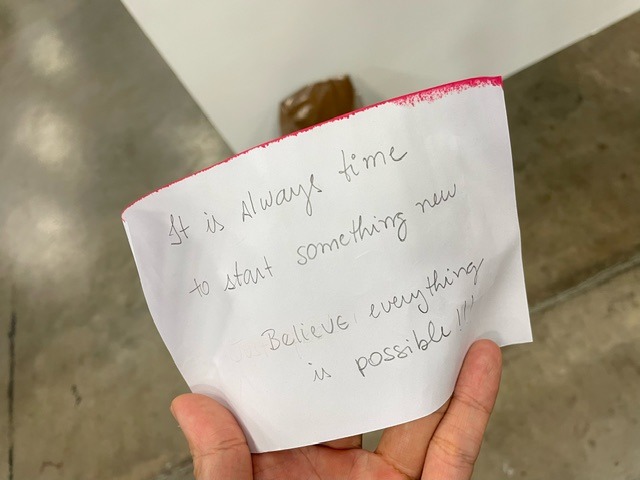 It is always time
to start something new
Believe, everything
is possible!!!